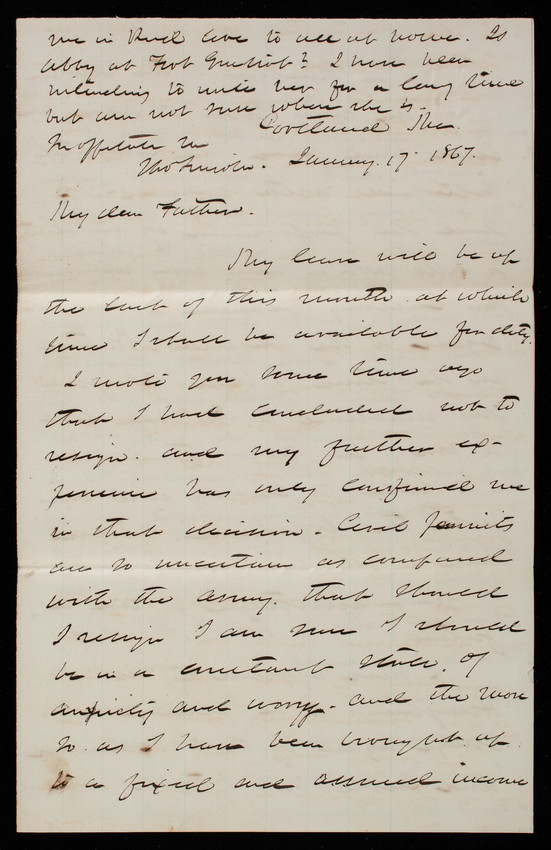 me in Kind love to all at home. Is
Abby at Fort Gratiot? I have been
intending to write her for a long time
but am not sure where she is.
Cortland
January. 17 1867.
My dear Father.
My leave will be up
the last of this month. at which
time I shall be available for duty.
I wrote you some time ago
that I had concluded not to
resign. and my further ex-
perience has only confirmed me
in that decision. Civil pursuits
are so uncertain as compared
with the army. that should
I resign I am sure I should
be in a constant state. of
anxiety and worry. and the more
so. as I have been brought up.
to a fixed and assured income